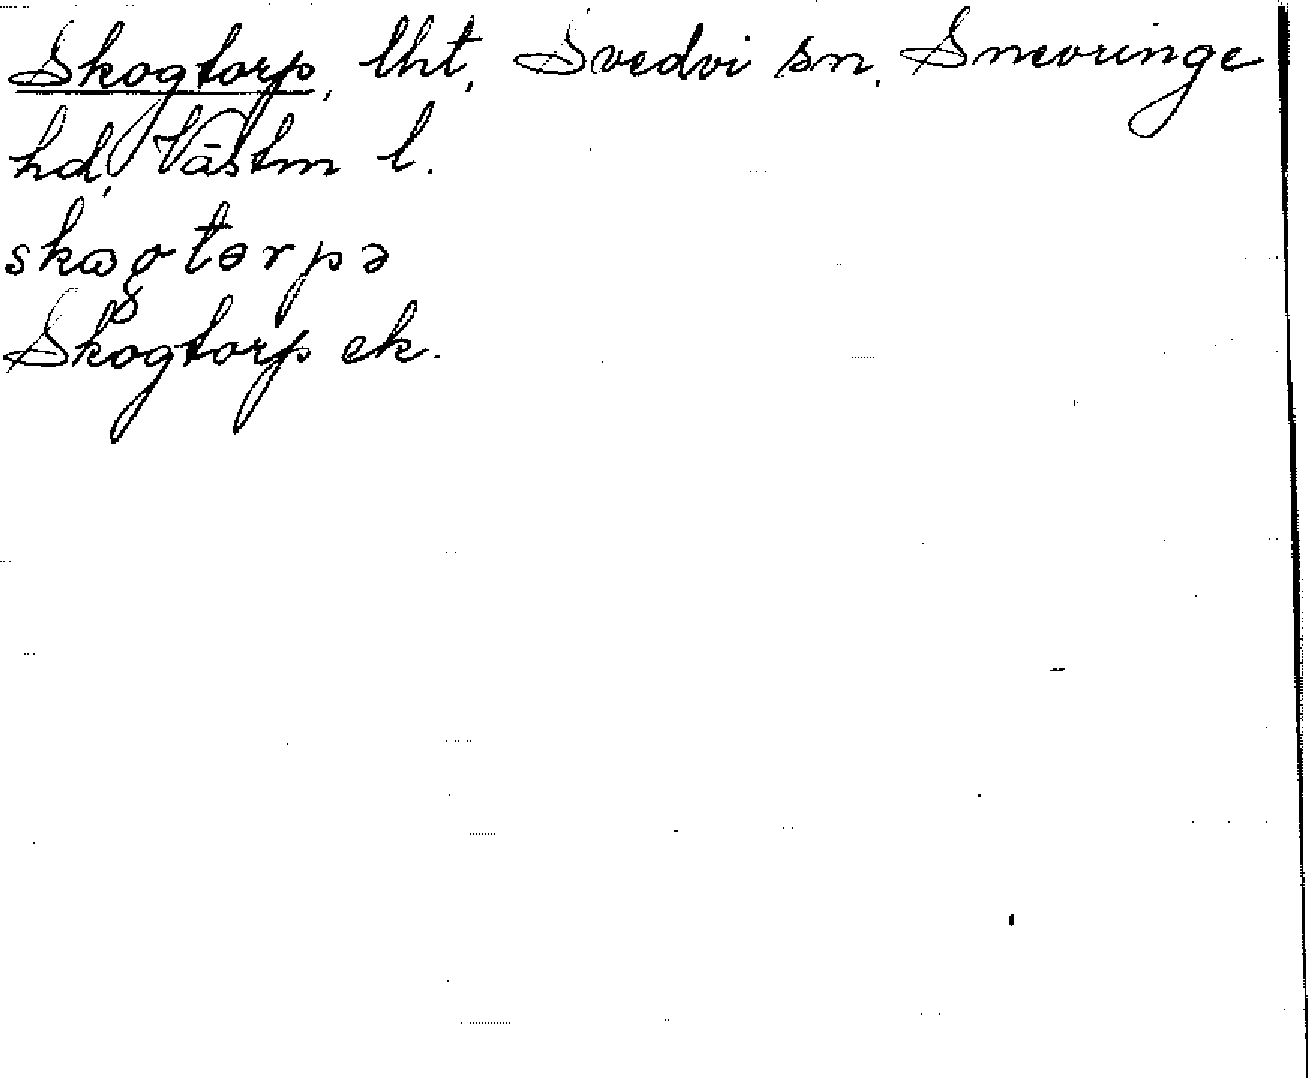 Skogtorp, lht, Svedvi sn, Snevringe
hd, Västm l.
skɷgtɵrpə
Skogtorp ek.